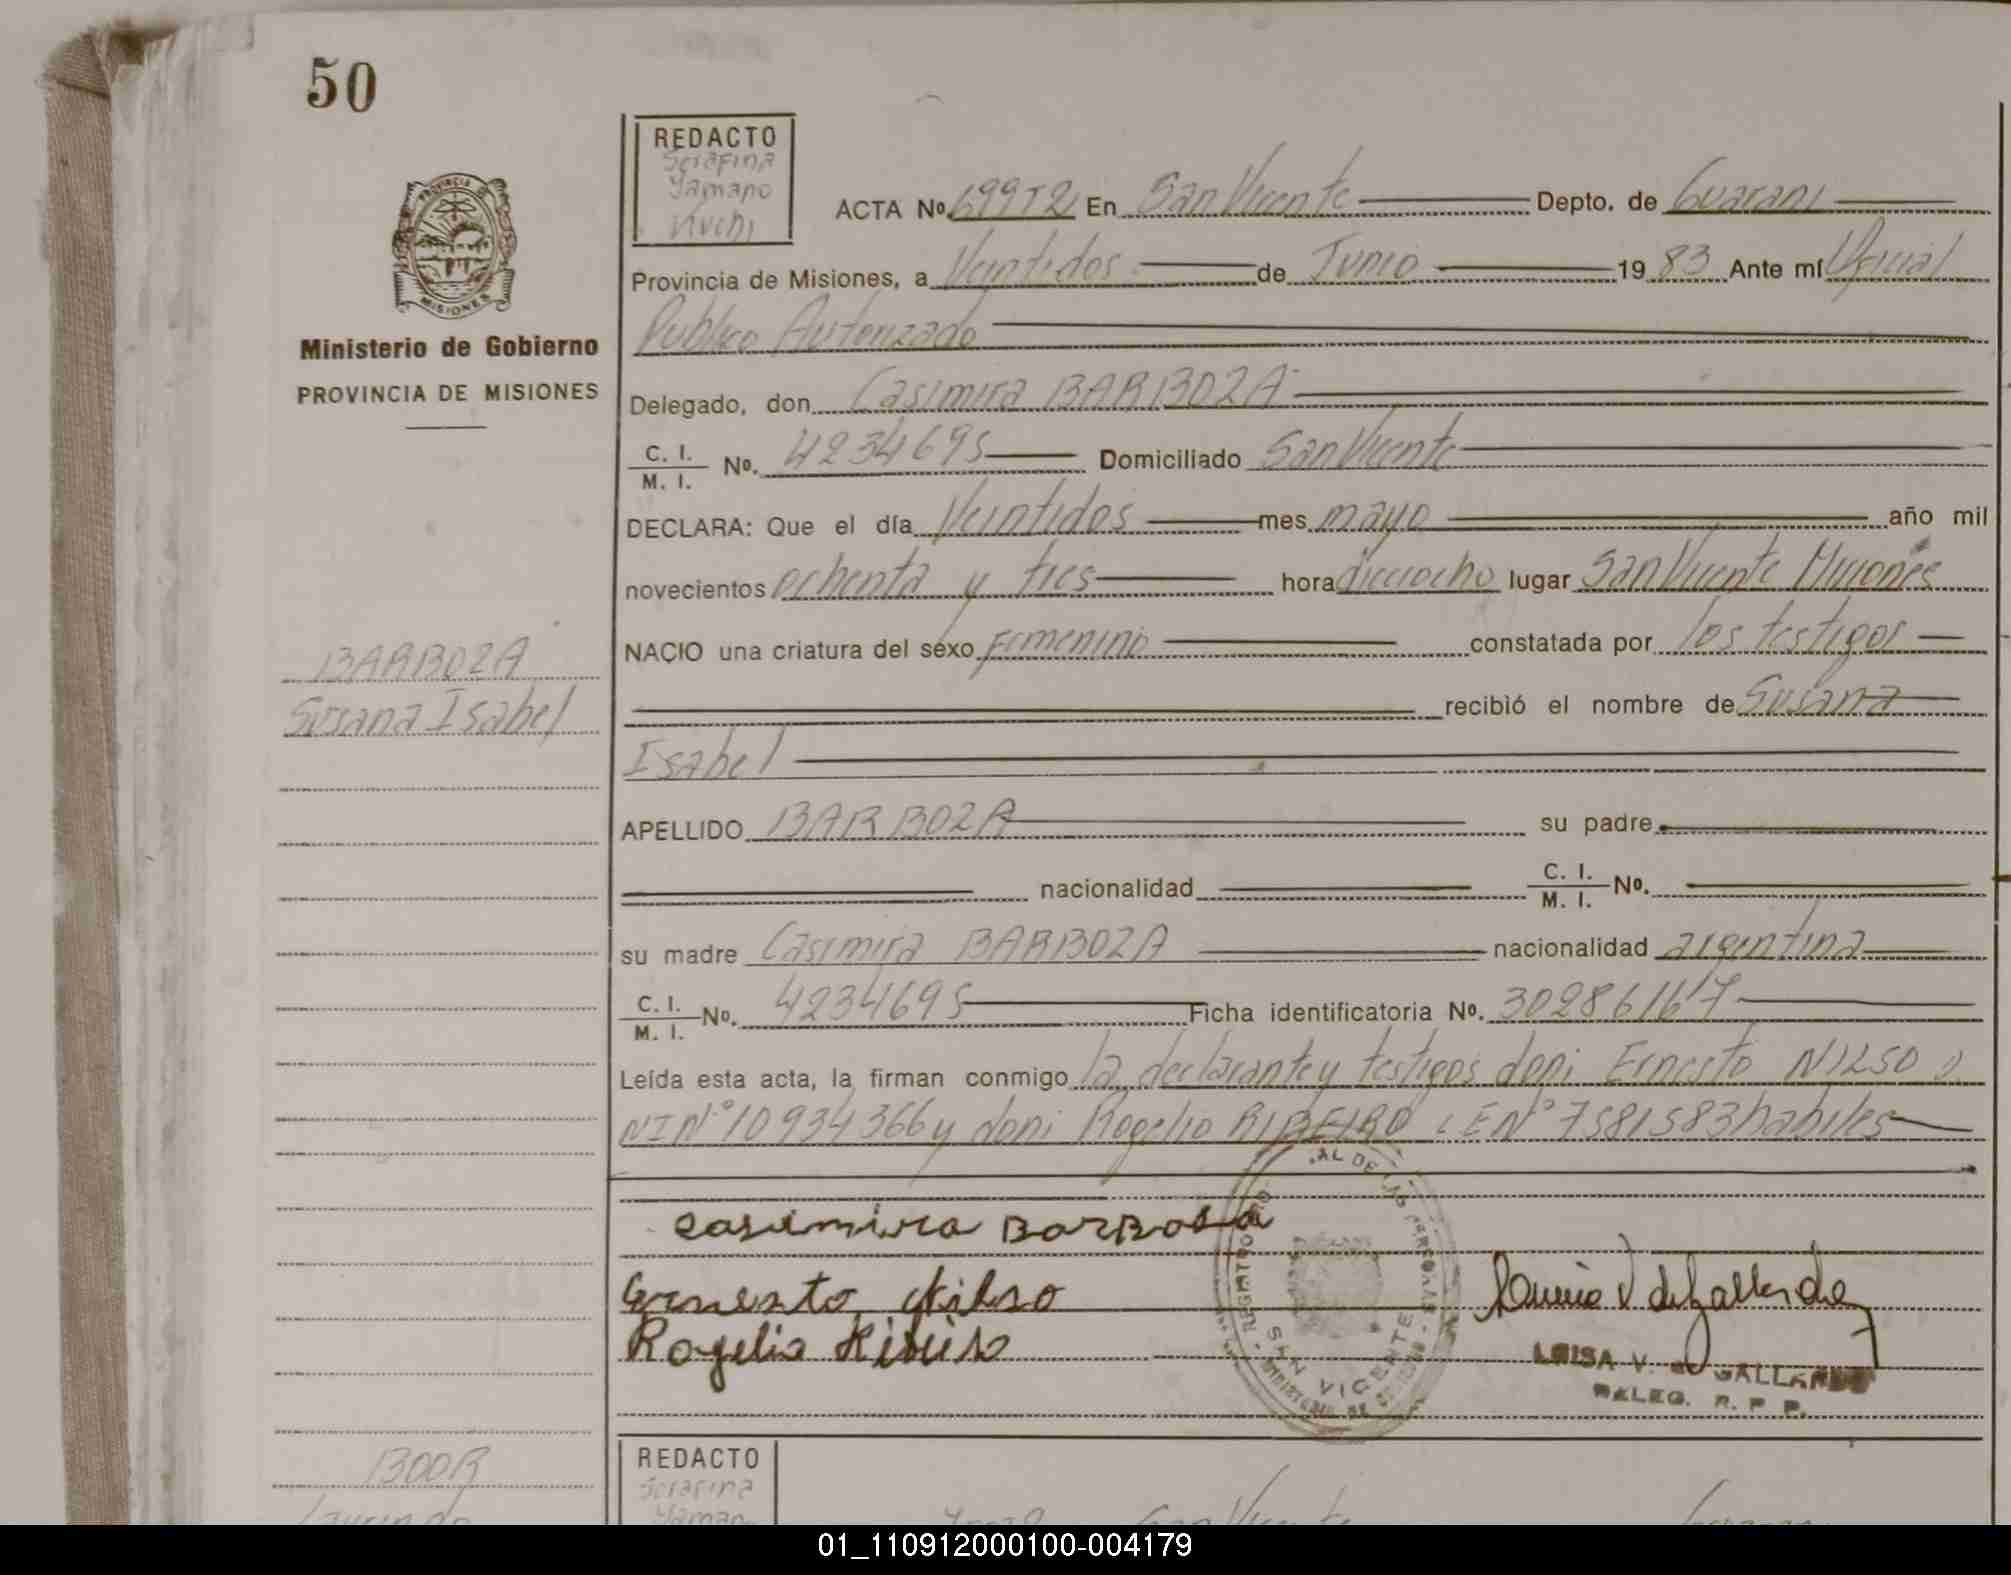 50
REDACTO
Serafina
Yamano
Kuchi
ACTA Nº 699T2 En San Vicente Depto. de Guarani
Provincia de Misiones, a Veintidos de Junio 1983 Ante mí Oficial
Publico Autorizado
PROVINCIA DE
MISIONES
Ministerio de Gobierno
PROVINCIA DE MISIONES
Delegado, don Casimira BARBOZA
C. I.
M. I. Nº. 4234695 Domiciliado San Vicente
DECLARA: Que el día Veintidos mes mayo año mil
novecientos ochenta y tres hora dieciocho lugar San Vicente Misiones
NACIO una criatura del sexo femenino constatada por los testigos
BARBOZA
Susana Isabel
recibió el nombre de Susana
Isabel
APELLIDO BARBOZA su padre
nacionalidad C. I.
M. I. Nº.
su madre Casimira BARBOZA nacionalidad argentina
C. I.
M. I. Nº. 4234695 Ficha identificatoria Nº. 30286167
Leída esta acta, la firman conmigo la declarante y testigos don: Ernesto NILSO
NI Nº 10934366 y don: Rogelio RIBEIRO LE Nº 7581583 habiles
Casimira BARBOSA
Ernesto Nilso
Rogelio Ribeiro
SAN VICENTE
LUISA V. de GALLARDO
DELEG. R. P. P.
REDACTO
Serafina
Yaman
BOOR
San Vicente
01_110912000100-004179